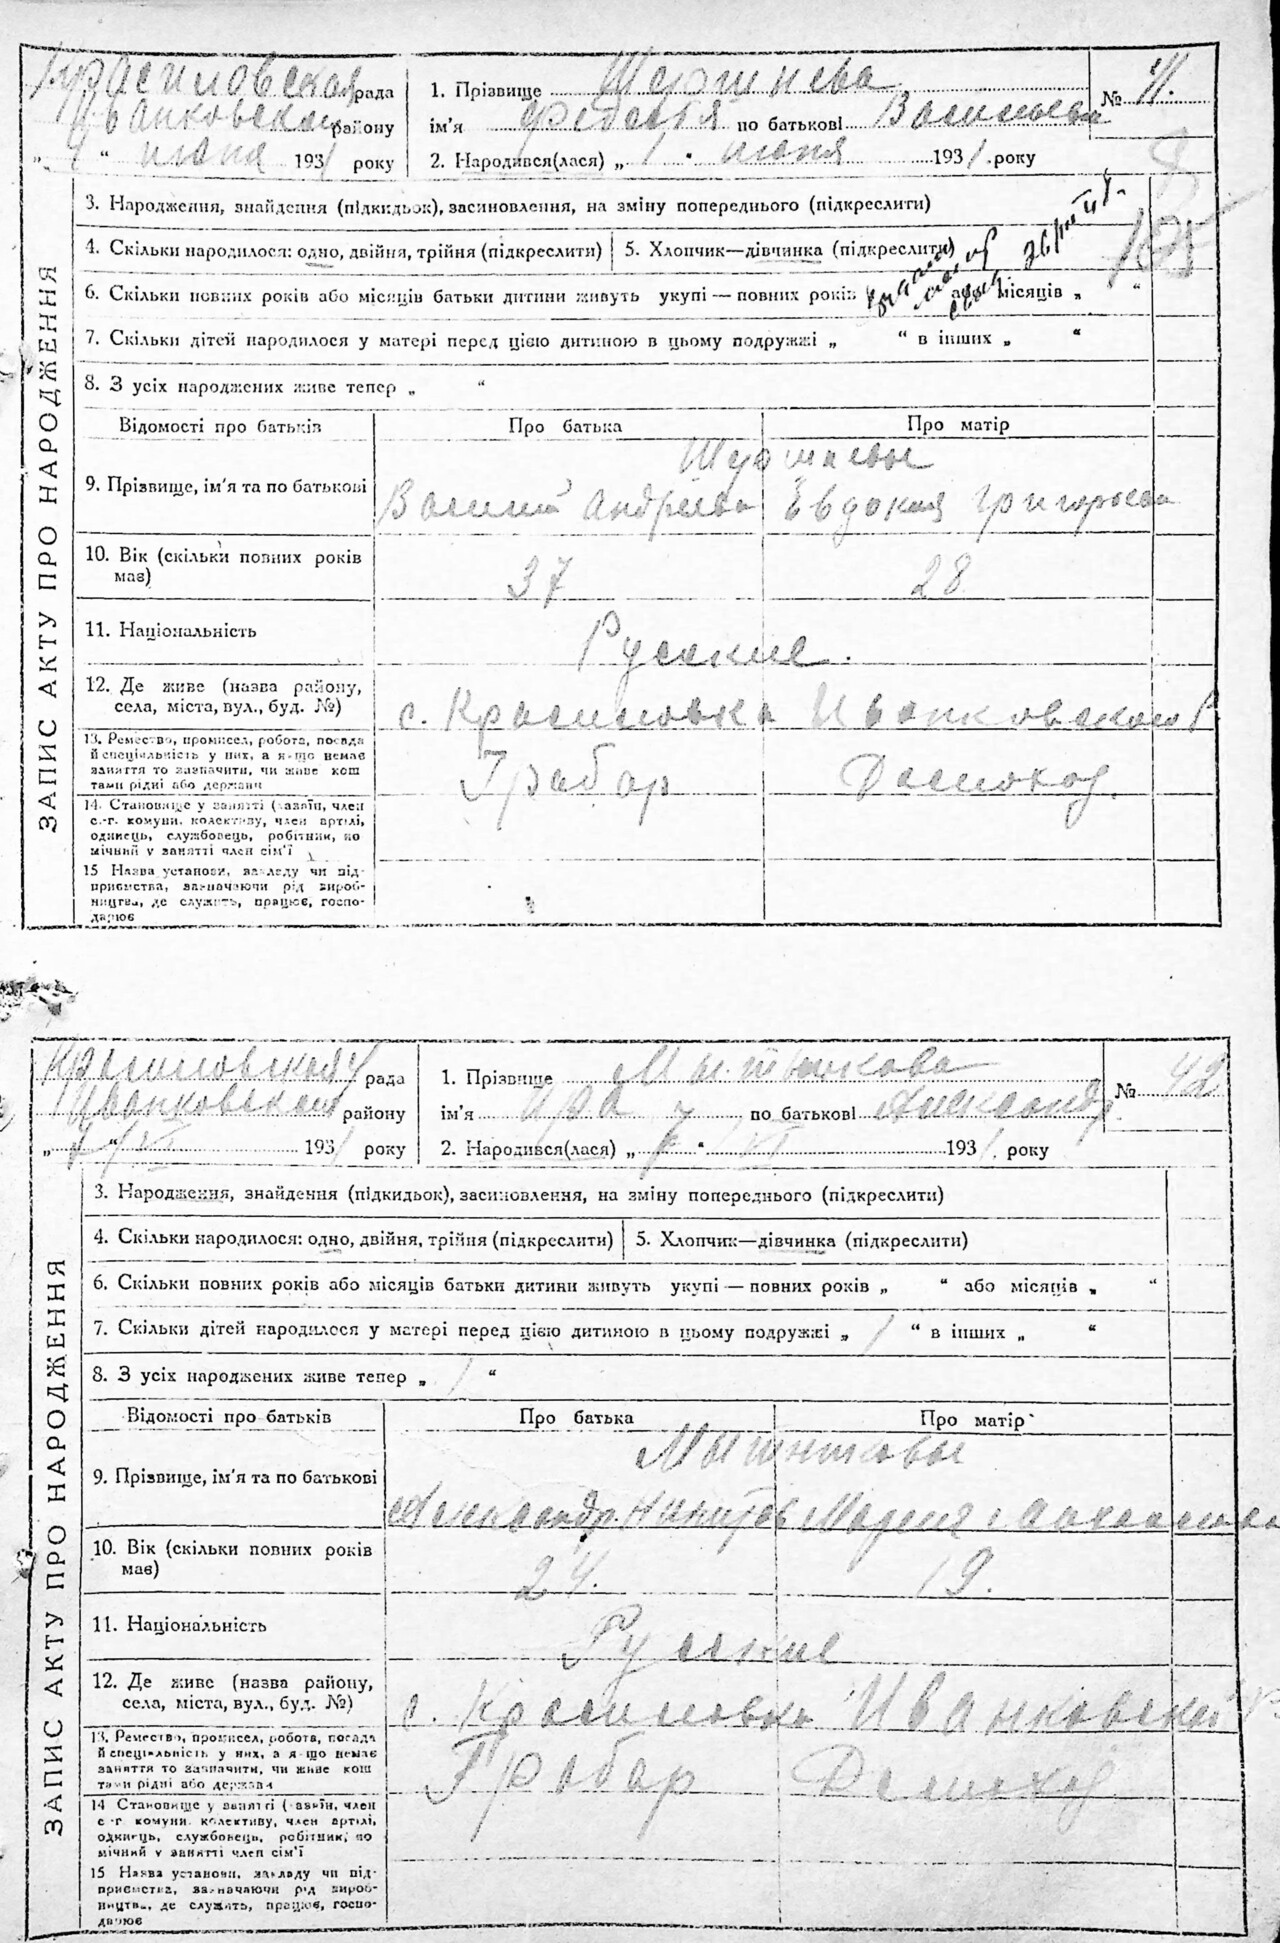 Красиловская рада
Иванковского району
" 4 " июня 1931 року
1. Прізвище
ім'я Федосья по батькові Васильева
2. Народився(лася) „ 1 " июня 1931 .року
№ 41.
3. Народження, знайдення (підкидьок), засиновлення, на зміну попереднього (підкреслити)
4. Скільки народилося: одно, двійня, трійня (підкреслити) 5. Хлопчик—дівчинка (підкреслити)
6. Скільки повних років або місяців батьки дитини живуть укупі — повних років або місяців „ “
7. Скільки дітей народилося у матері перед цією дитиною в цьому подружжі „ “ в інших „ “
8. З усіх народжених живе тепер „ “
Відомості про батьків Про батька Про матір
9. Прізвище, ім'я та по батькові
Василий Андреева Евдокия Григорьева
10. Вік (скільки повних років
має)
37 28
11. Національність Русские.
12. Де живе (назва району,
села, міста, вул., буд. №)
с. Красиловка Иванковского Р.
13. Ремество, промисел, робота, посада
й спеціяльність у них, а якщо немає
заняття то зазначити, чи живе кош
тами рідні або держави
Грабар Домоход.
14. Становище у занятті (хазяїн, член
с.-г. комуни, колективу, член артілі,
одинець, службовець, робітник, по
мічний у занятті член сім'ї
15 Назва установи, закладу чи під-
приємства, зазначаючи рід вироб-
ництва, де служить, працює, госпо-
дарює
ЗАПИС АКТУ ПРО НАРОДЖЕННЯ
Красиловская рада
Иванковского району
„ 4 “ VI 1931 року
1. Прізвище Мытникова
ім'я Ира по батькові Александр.
2. Народився(лася) „ “ VI 1931. року
№ 42
3. Народження, знайдення (підкидьок), засиновлення, на зміну попереднього (підкреслити)
4. Скільки народилося: одно, двійня, трійня (підкреслити) 5. Хлопчик—дівчинка (підкреслити)
6. Скільки повних років або місяців батьки дитини живуть укупі — повних років „ “ або місяців „ “
7. Скільки дітей народилося у матері перед цією дитиною в цьому подружжі „ 1 “ в інших „ “
8. З усіх народжених живе тепер „ 1 “
Відомості про батьків Про батька Про матір
Мытниковы
9. Прізвище, ім'я та по батькові
Александр. Никитов Мария
10. Вік (скільки повних років
має)
24. 19.
11. Національність Русские
12. Де живе (назва району,
села, міста, вул., буд. №)
с. Красиловка Иванковский р
13. Ремество, промисел, робота, посада
й спеціяльність у них, а якщо немає
заняття то зазначити, чи живе кош
тами рідні або держави
Грабар Домоход
14 Становище у занятті (хазяїн, член
с-г комуни, колективу, член артілі,
одинець, службовець, робітник, по
мічний у занятті член сім'ї
15 Назва установи, закладу чи під-
приємства, зазначаючи рід вироб-
ництва, де служить, працює, госпо-
дарює
ЗАПИС АКТУ ПРО НАРОДЖЕННЯ